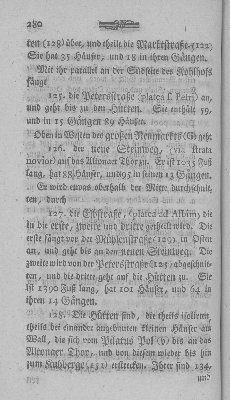 280
ten (128) über, und theilt die Marktstraße (122)
Sie hat 35 Häuser, und 18 in ihren Gängen.
Mit ihr parallel an der Südseite des Kohlhofs
fängt
125. die Petersstraße (platea S. Petri) an,
und geht bis zu den Hütten. Sie enthält 59
und in 15 Gängen 89 Häuser.
Oben in Westen des großen Neumarkts (S) geht
126. der neue Steinweg, (via strata
novior) auf das Altonaer Thor zu. Er ist 1035 Fuß
lang, hat 88 Häuser, und 95 in seinen 13 Gängen.
Er wird etwas oberhalb der Mitte durchschnitten,
durch
127. die Elbstraße, (platea ad Albim) die
in die erste, zweite und dritte getheilt wird. Die
erste fängt vor der Mühlenstraße (129) in Osten
an, und geht bis an den neuen Steinweg. Die
zweite wird von der Petersstraße (125) abgeschnitten,
und die dritte geht auf die Hütten zu. Sie
ist 1390 Fuß lang, hat 101 Häuser, und 64 in
ihren 14 Gängen.
128. Die Hütten sind, die theils isolirten, theils
bei einander angebauten kleinen Häuser am
Wall, die sich vom Pilatus Pol (v) bis an das
Altonaer Thor, und von diesem wieder bis hin
zum Kuhberge (131) erstrecken. Ihrer sind 134,
und